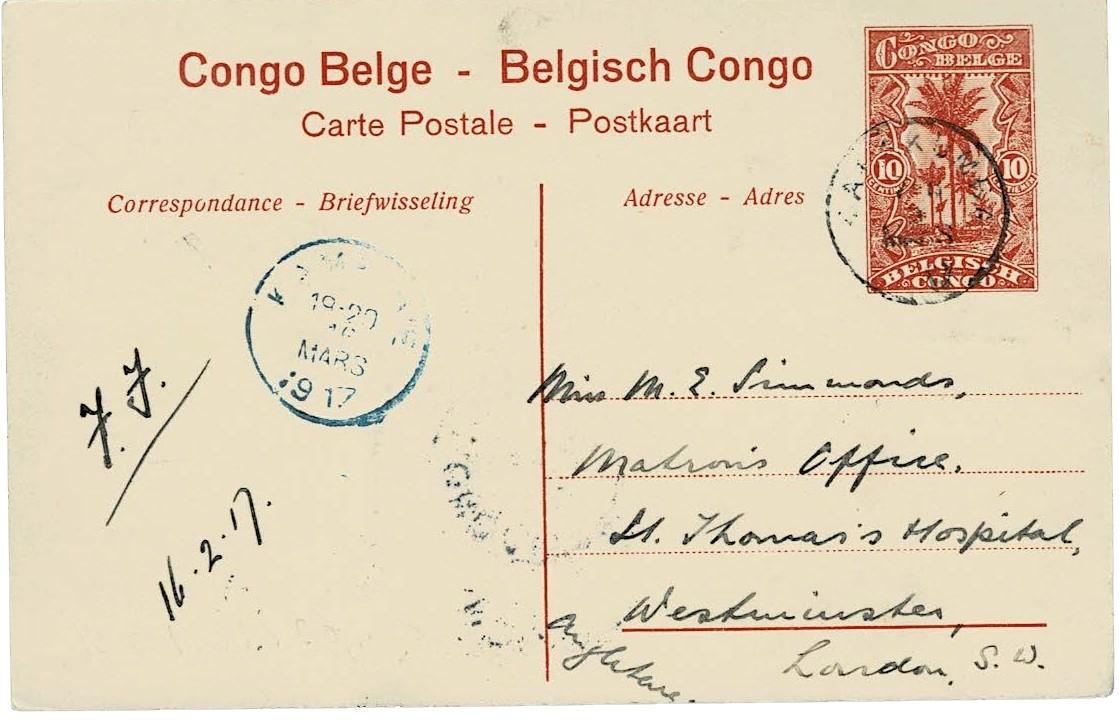 Congo Belge - Belgisch Congo
Carte Postale - Postkaart
CONGO
BELGE
10 10
BELGISCH
CONGO
Correspondance - Briefwisseling
Adresse - Adres
19-20
MARS
1917
J. J.
16.2.17.
Miss M. E. Simmonds,
Matron's Office,
St. Thomas's Hospital,
Westminster,
London, S. W.
Angleterre.